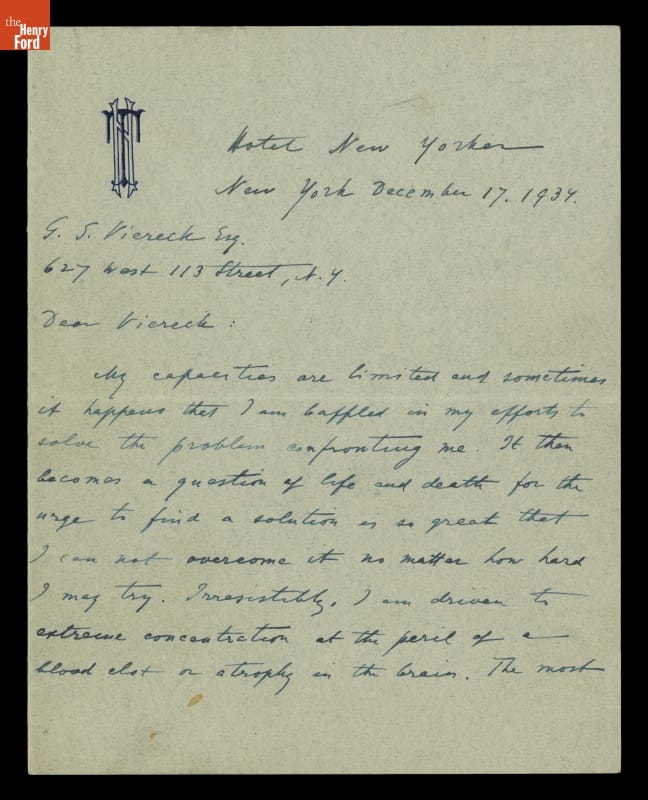 the
Henry
Ford
Hotel New Yorker
New York December 17. 1934.
G. S. Viereck Esq.
627 West 113 Street, N.Y.
Dear Viereck :
My capacities are limited and sometimes
it happens that I am baffled in my efforts to
solve the problem confronting me. It then
becomes a question of life and death for the
urge to find a solution is so great that
I can not overcome it no matter how hard
I may try. Irresistibly, I am driven to
extreme concentration at the peril of a
blood clot or atrophy in the brain. The most